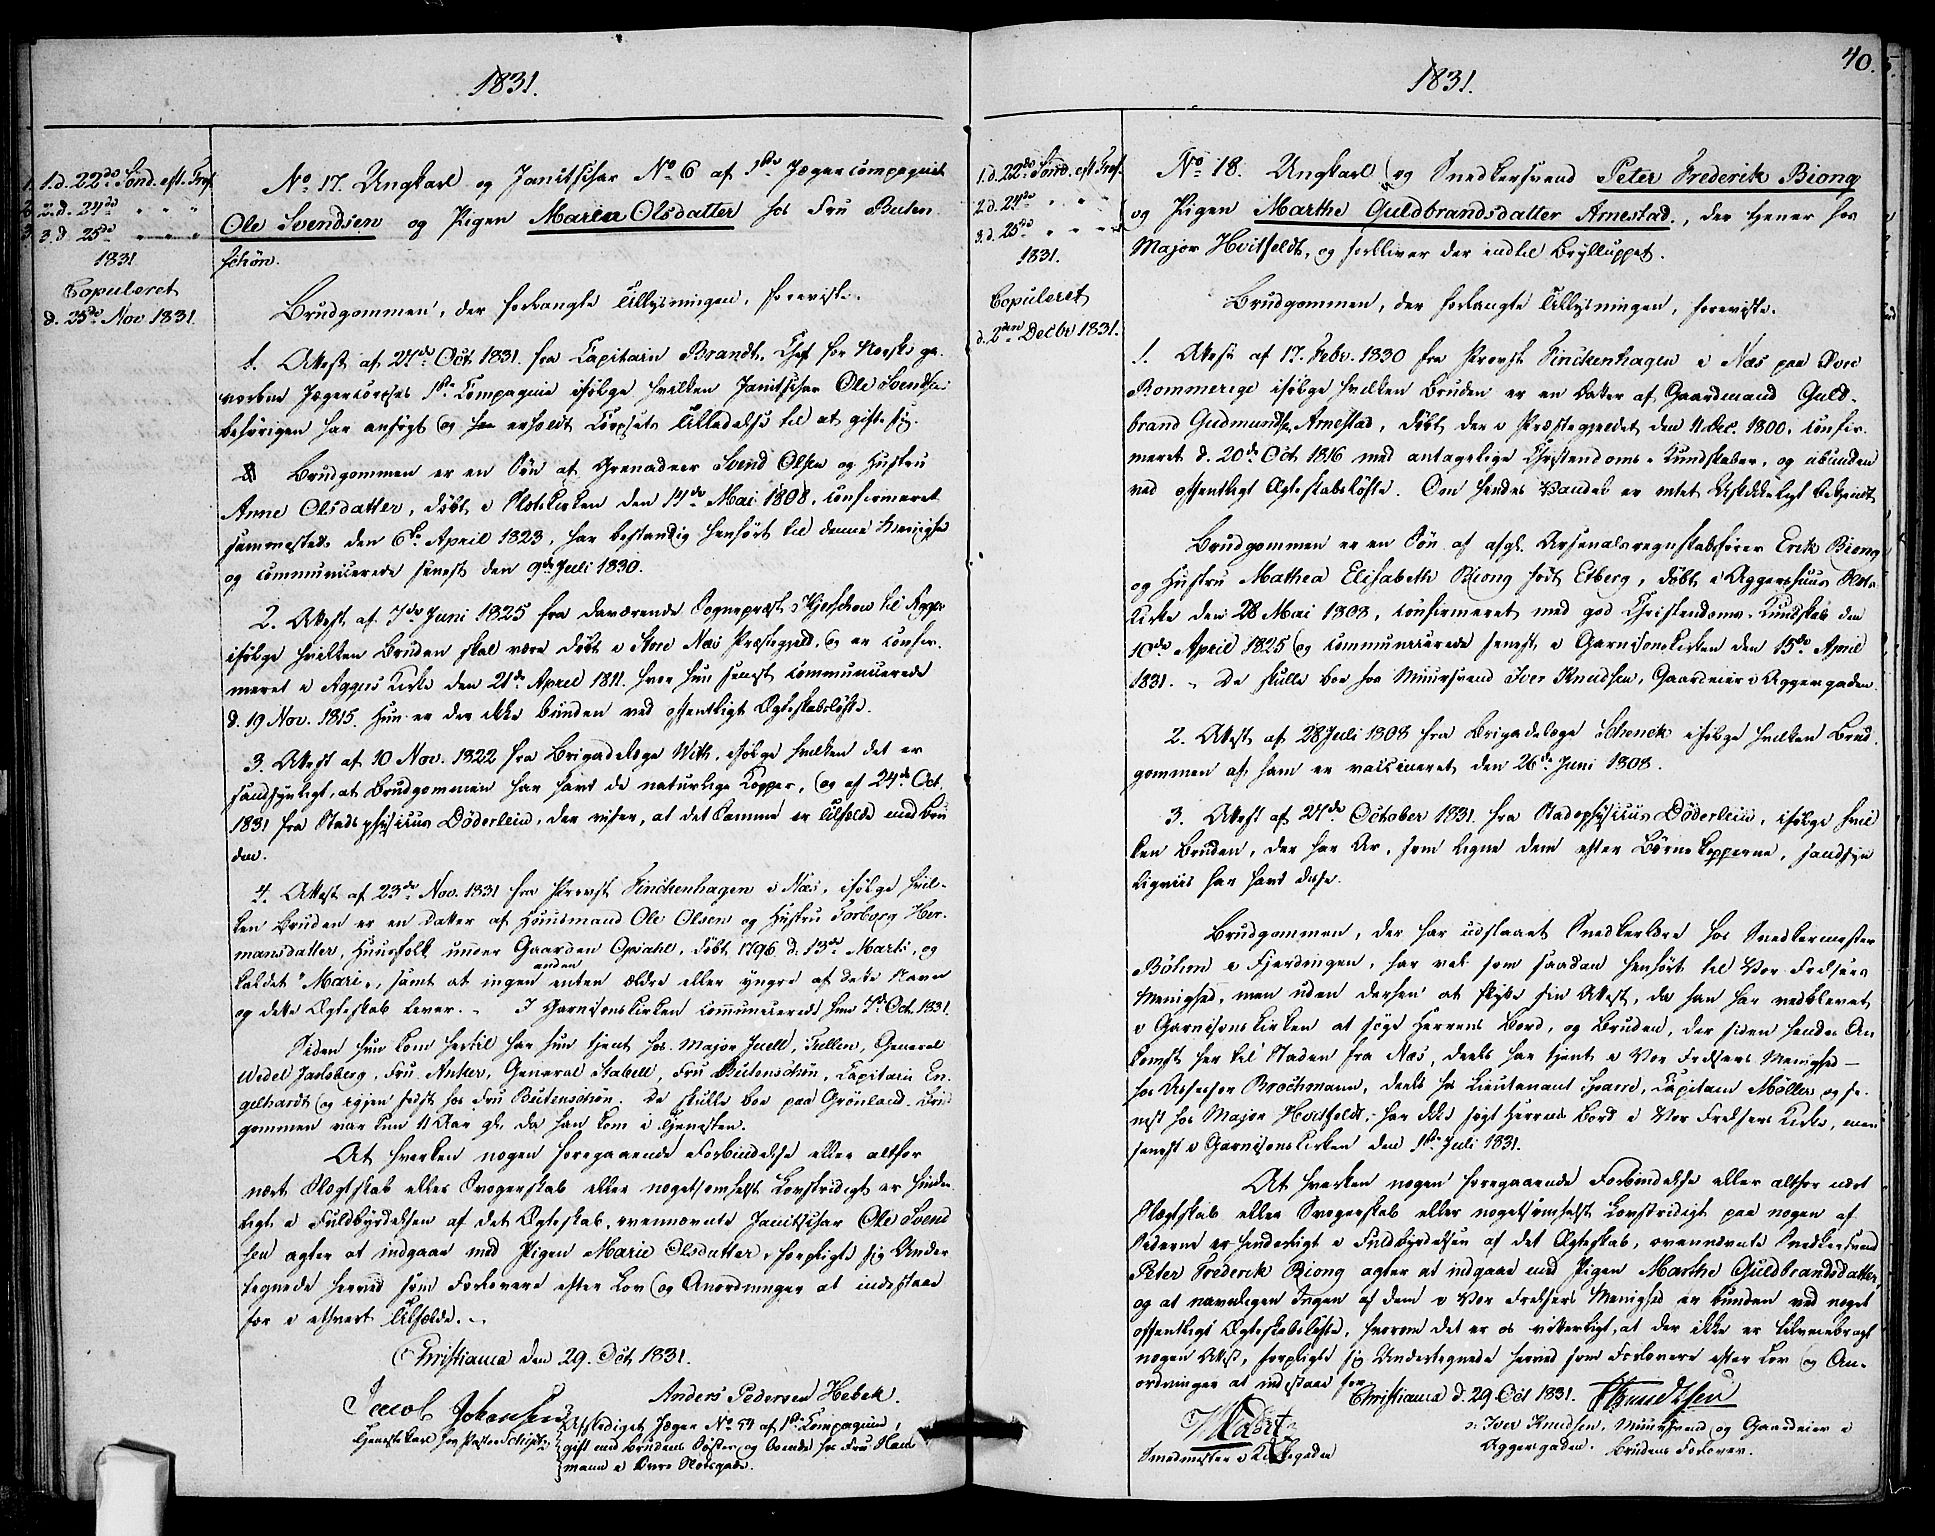 1831.
1. d. 22de Sønd. eft. Tref.
2. d. 24de " " "
3. d. 25de " " "
1831
Copuleret
d. 25de Nov 1831.
No 17. Ungkarl og Janitschar No 6 af 1ste Jægercompagnie
Ole Svendsen og Pigen Maria Olsdatter hos Fru Buten
schøn.
Brudgommen, der forlangte Tillysningen, foreviste.
1. Attest af 27de Oct. 1831. fra Capitain Brandt, Chef for Norske ge-
vorbne Jægercorpses 1ste Compagnie ifølge hvilken Janitschar Ole Svendsen
behørigen har ansøgt og erholdt Corpsets Tilladelse til at gifte sig.
Brudgommen er en Søn af Grenadeer Svend Olsen og Hustru
Anne Olsdatter, døbt i Slotskirken den 14de Mai 1808, confirmeret
sammesteds den 6te April 1823, har bestandig henhørt til denne Menighed
og communicerede senest den 9de Juli 1830.
2. Attest af 7de Juni 1825 fra daværende Sognepræst Hjerschow til Agger
ifølge hvilken Bruden skal være døbt i Store Næs Præstegjeld, og er confir-
meret i Aggers Kirke den 21de April 1811. hvor hun senest communicerede
d. 19 Nov. 1815. Hun er der ikke bunden ved offentligt Ægteskabsløfte.
3. Attest af 10 Nov. 1822 fra Brigadelæge With, ifølge hvilken det er
sandsynligt, at Brudgommen har havt de naturlige Kopper, og af 24de Oct.
1831 fra Stadsphysicus Döderlein, der viser, at det samme er Tilfælde med Bru
den.
4. Attest af 23de Nov. 1831 fra Provst Finckenhagen i Næs, ifølge hvil-
ken Bruden er en Datter af Huusmand Ole Olsen og Hustru Torborg Her-
mansdatter, Huusfolk under Gaarden Opsahl, døbt 1796 d. 13de Marts, og
kaldet "Mari", samt at ingen anden enten ældre eller yngre af dette Navn
og dette Ægteskab lever. - I Garnisonskirken communicerede hun 7de Oct. 1831.
Siden hun kom hertil har hun tjent hos Major Juell, Tullen, General
Wedel Jarlsberg, Fru Anker, General Stabell, Fru Butenschøn, Capitain En-
gelhardt og igjen sidst hos Fru Butenschøn. De skulle boe paa Grönland. Brud
gommen var kun 11 Aar gl. da han kom i Tjenesten.
At hverken nogen foregaaende Forbindelse eller altfor
nært Slægtskab eller Svogerskab eller nogetsomhelst Lovstridigt er hinder
ligt i Fuldbyrdelsen af det Ægteskab, ovennævnte Janitschar Ole Svend
sen agter at indgaae med Pigen Marie Olsdatter, forpligte sig Under
tegnede herved som Forlovere efter Lov og Anordninger at indestaae
for i ethvert Tilfælde.
Christiania den 29. Oct. 1831.
Jacob Johansen Anders Pedersen Hebek.
Tjenestekarl hos Pastor
Afskediget Jæger No 54 af 1ste Compagnie,
gift med Brudens Søster og boende hos Fru
mann i Øvre Slotsgade.
40.
1831.
1. d. 22de Sønd. eft. Tref.
2. d. 24de " " "
3. d. 25de " " "
1831.
Copuleret
d. 2den Decbr 1831.
No 18. Ungkarl og Snedkersvend Peter Frederik Biong
og Pigen Marthe Guldbrandsdatter Arnestad, der tjener hos
Major Hvitfeldt, og forbliver der indtil Brylluppet.
Brudgommen, der forlangte Tillysningen, foreviste.
1. Attest af 17. Febr. 1830 fra Provst Finckenhagen i Næs paa Øvre
Rommerige ifølge hvilken Bruden er en Datter af Gaardmand Guld-
brand Gudmunds. Arnestad, døbt der i Præstegjeldet den 11 Dec. 1800, confir-
meret d. 20de Oct 1816 med antagelige Christendoms-Kundskaber, og ubunden
ved offentligt Ægteskabsløfte. Om hendes Vandel er intet Uskikkeligt bekjendt
Brudgommen er en Søn af afgl. Arsenalsregnskabsfører Erik Biong
og Hustru Mathea Elisabeth Biong født Etberg, døbt i Aggershuus Slots
Kirke den 28 Mai 1808, confirmeret med god Christendoms-Kundskab den
10de April 1825 og communicerede senest i Garnisonskirken den 15de April
1831. - De skulle boe hos Muursvend Iver Knudsen, Gaardeier i Aggergaden.
2. Attest af 28 Juli 1808 fra Brigadelæge Schenck ifølge hvilken Brud
gommen af ham er vaccineret den 26de Juni 1808.
3. Attest af 27de October 1831. fra Stadsphysicus Döderlein, ifølge hvil
ken Bruden, der har Ar, som ligne dem efter Børnekopperne, sandsyn
ligviis har havt disse.
Brudgommen, der har udstaaet Snedkerlære hos Snedkermester
Böhm i Fjerdingen, har vel som saadan henhørt til Vor Frelsers
Menighed, men uden dersen at skyde sin Attest, da han har vedblevet
i Garnisonskirken at søge Herrens Bord, og Bruden, der siden hendes An
komst her til Staden fra Næs, deels har tjent i Vor Frelsers Menighed -
hos Assessor Brochmann, deels hos Lieutenant Sparre, Capitain Møller og se-
nest hos Major Hvitfeldt, har ikke søgt Herrens Bord i Vor Frelsers Kirke, men
senest i Garnisonskirken den 1ste Juli 1831.
At hverken nogen foregaaende Forbindelse eller altfor nært
Slægtskab eller Svogerskab eller nogetsomhelst Lovstridigt paa nogen af
Siderne er hinderligt i Fuldbyrdelsen af det Ægteskab, ovennævnte Snedkersvend
Peter Frederik Biong agter at indgaae med Pigen Marthe Guldbrandsdatter,
og at navnligen Ingen af dem i Vor Frelsers Menighed er bunden ved noget
offentligt Ægteskabsløfte, hvorom det er os vitterligt, at der ikke er tilveiebragt
nogen Attest, forpligte sig Undertegnede herved som Forlovere efter Lov og An-
ordninger at indestaae for.
Christiania d. 29 Oct 1831. Knudtsen
Smedmester i Kirkegaden
Iver Knudsen, Muursvend og Gaardeier i
Aggergaden. Brudens Forlover.